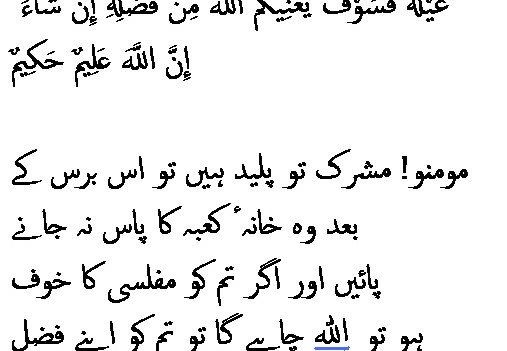 عَيْلَةً فَسَوْفَ يُغْنِيكُمُ اللَّهُ مِن فَضْلِهِ إِن شَاءَ
إِنَّ اللَّهَ عَلِيمٌ حَكِيمٌ
مومنو! مشرک تو پلید ہیں تو اس برس کے
بعد وہ خانۂ کعبہ کا پاس نہ جانے
پائیں اور اگر تم کو مفلسی کا خوف
ہو تو اللہ چاہے گا تو تم کو اپنے فضل